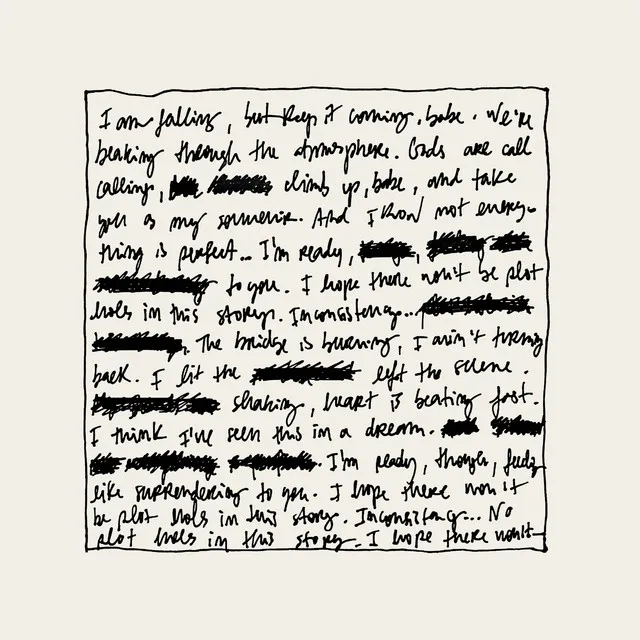 I am falling, but keep it coming, babe. We're
beaking through the atmosphere. Gods are call
calling, climb up, babe, and take
you as my souvenir. And I know not every-
thing is perfect... I'm ready,
to you. I hope there won't be plot
hols in this story. Inconsistency...
The bridge is burning, I ain't turning
back. I lit the left the scene.
shaking, heart is beating fast.
I think I've seen this in a dream.
I'm ready, though, feels
like surrendering to you. I hope there won't
be plot hols in this story. Inconsistency... No
plot holes in this story. I hope there won't